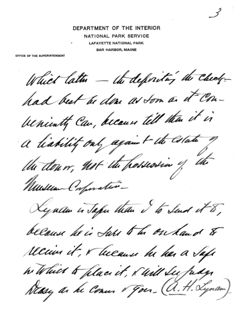 3
DEPARTMENT OF THE INTERIOR
NATIONAL PARK SERVICE
LAFAYETTE NATIONAL PARK
BAR HARBOR, MAINE
OFFICE OF THE SUPERINTENDENT
Which latter — the depositing the check —
had best be done as soon as it con-
veniently can, because till then it is
a liability only against the estate of
the donor, not the possession of the
Museum Corporation —
Lynam is safer than I to send it to,
because he is sure to be on hand to
receive it, & because he has a safe
in which to place it, & will see Judge
Deasy as he comes & goes. (A. H. Lynam)